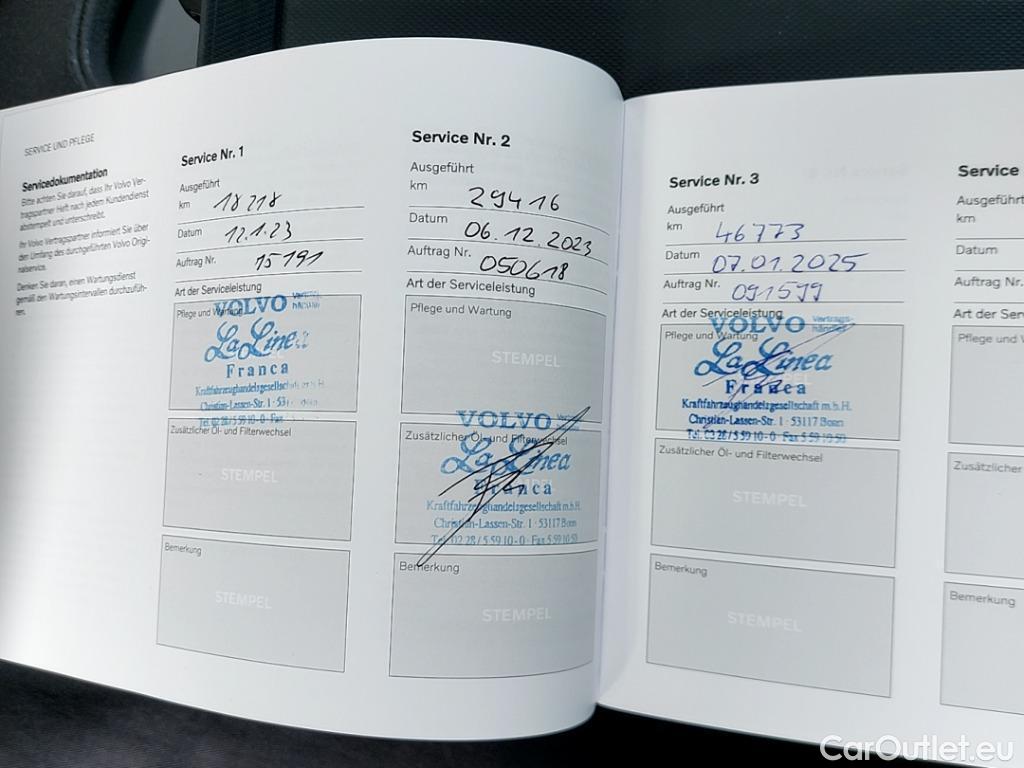 SERVICE UND PFLEGE
Servicedokumentation
Bitte achten Sie darauf, dass Ihr Volvo Ver-
tragspartner Heft nach jedem Kundendienst
abstempelt und unterschreibt.
Ihr Volvo Vertragspartner informiert Sie über
den Umfang des durchgeführten Volvo Origi-
nalservice.
Denken Sie daran, einen Wartungsdienst
gemäß den Wartungsintervallen durchzufüh-
ren.
Service Nr. 1
Ausgeführt
km 18218
Datum 12.1.23
Auftrag Nr. 15191
Art der Serviceleistung
Pflege und Wartung
VOLVO
La Linea
Franca
Kraftfahrzeughandelsgesellschaft m.b.H.
Christian-Lassen-Str. 1 · 531
Tel. 02 28 / 5 59 10 - 0 · Fax
Zusätzlicher Öl- und Filterwechsel
STEMPEL
Bemerkung
STEMPEL
Service Nr. 2
Ausgeführt
km 29416
Datum 06.12.2023
Auftrag Nr. 050618
Art der Serviceleistung
Pflege und Wartung
STEMPEL
VOLVO
Zusätzlicher Öl- und Filterwechsel
La Linea
Franca
Kraftfahrzeughandelsgesellschaft m.b.H.
Christian-Lassen-Str. 1 · 53117 Bonn
Tel. 02 28 / 5 59 10 - 0 · Fax 5 59 10 50
Bemerkung
STEMPEL
Service Nr. 3
Ausgeführt
km 46773
Datum 07.01.2025
Auftrag Nr. 091599
Art der Serviceleistung
VOLVO Vertrags-
händler
Pflege und Wartung
La Linea
Franca
Kraftfahrzeughandelsgesellschaft m.b.H.
Christian-Lassen-Str. 1 · 53117 Bonn
Tel. 02 28 / 5 59 10 - 0 · Fax 5 59 10 50
Zusätzlicher Öl- und Filterwechsel
STEMPEL
Bemerkung
STEMPEL
Service
Ausgeführt
km
Datum
Auftrag Nr.
Art der Ser
Pflege und
Zusätzlicher
Bemerkung
CarOutlet.eu